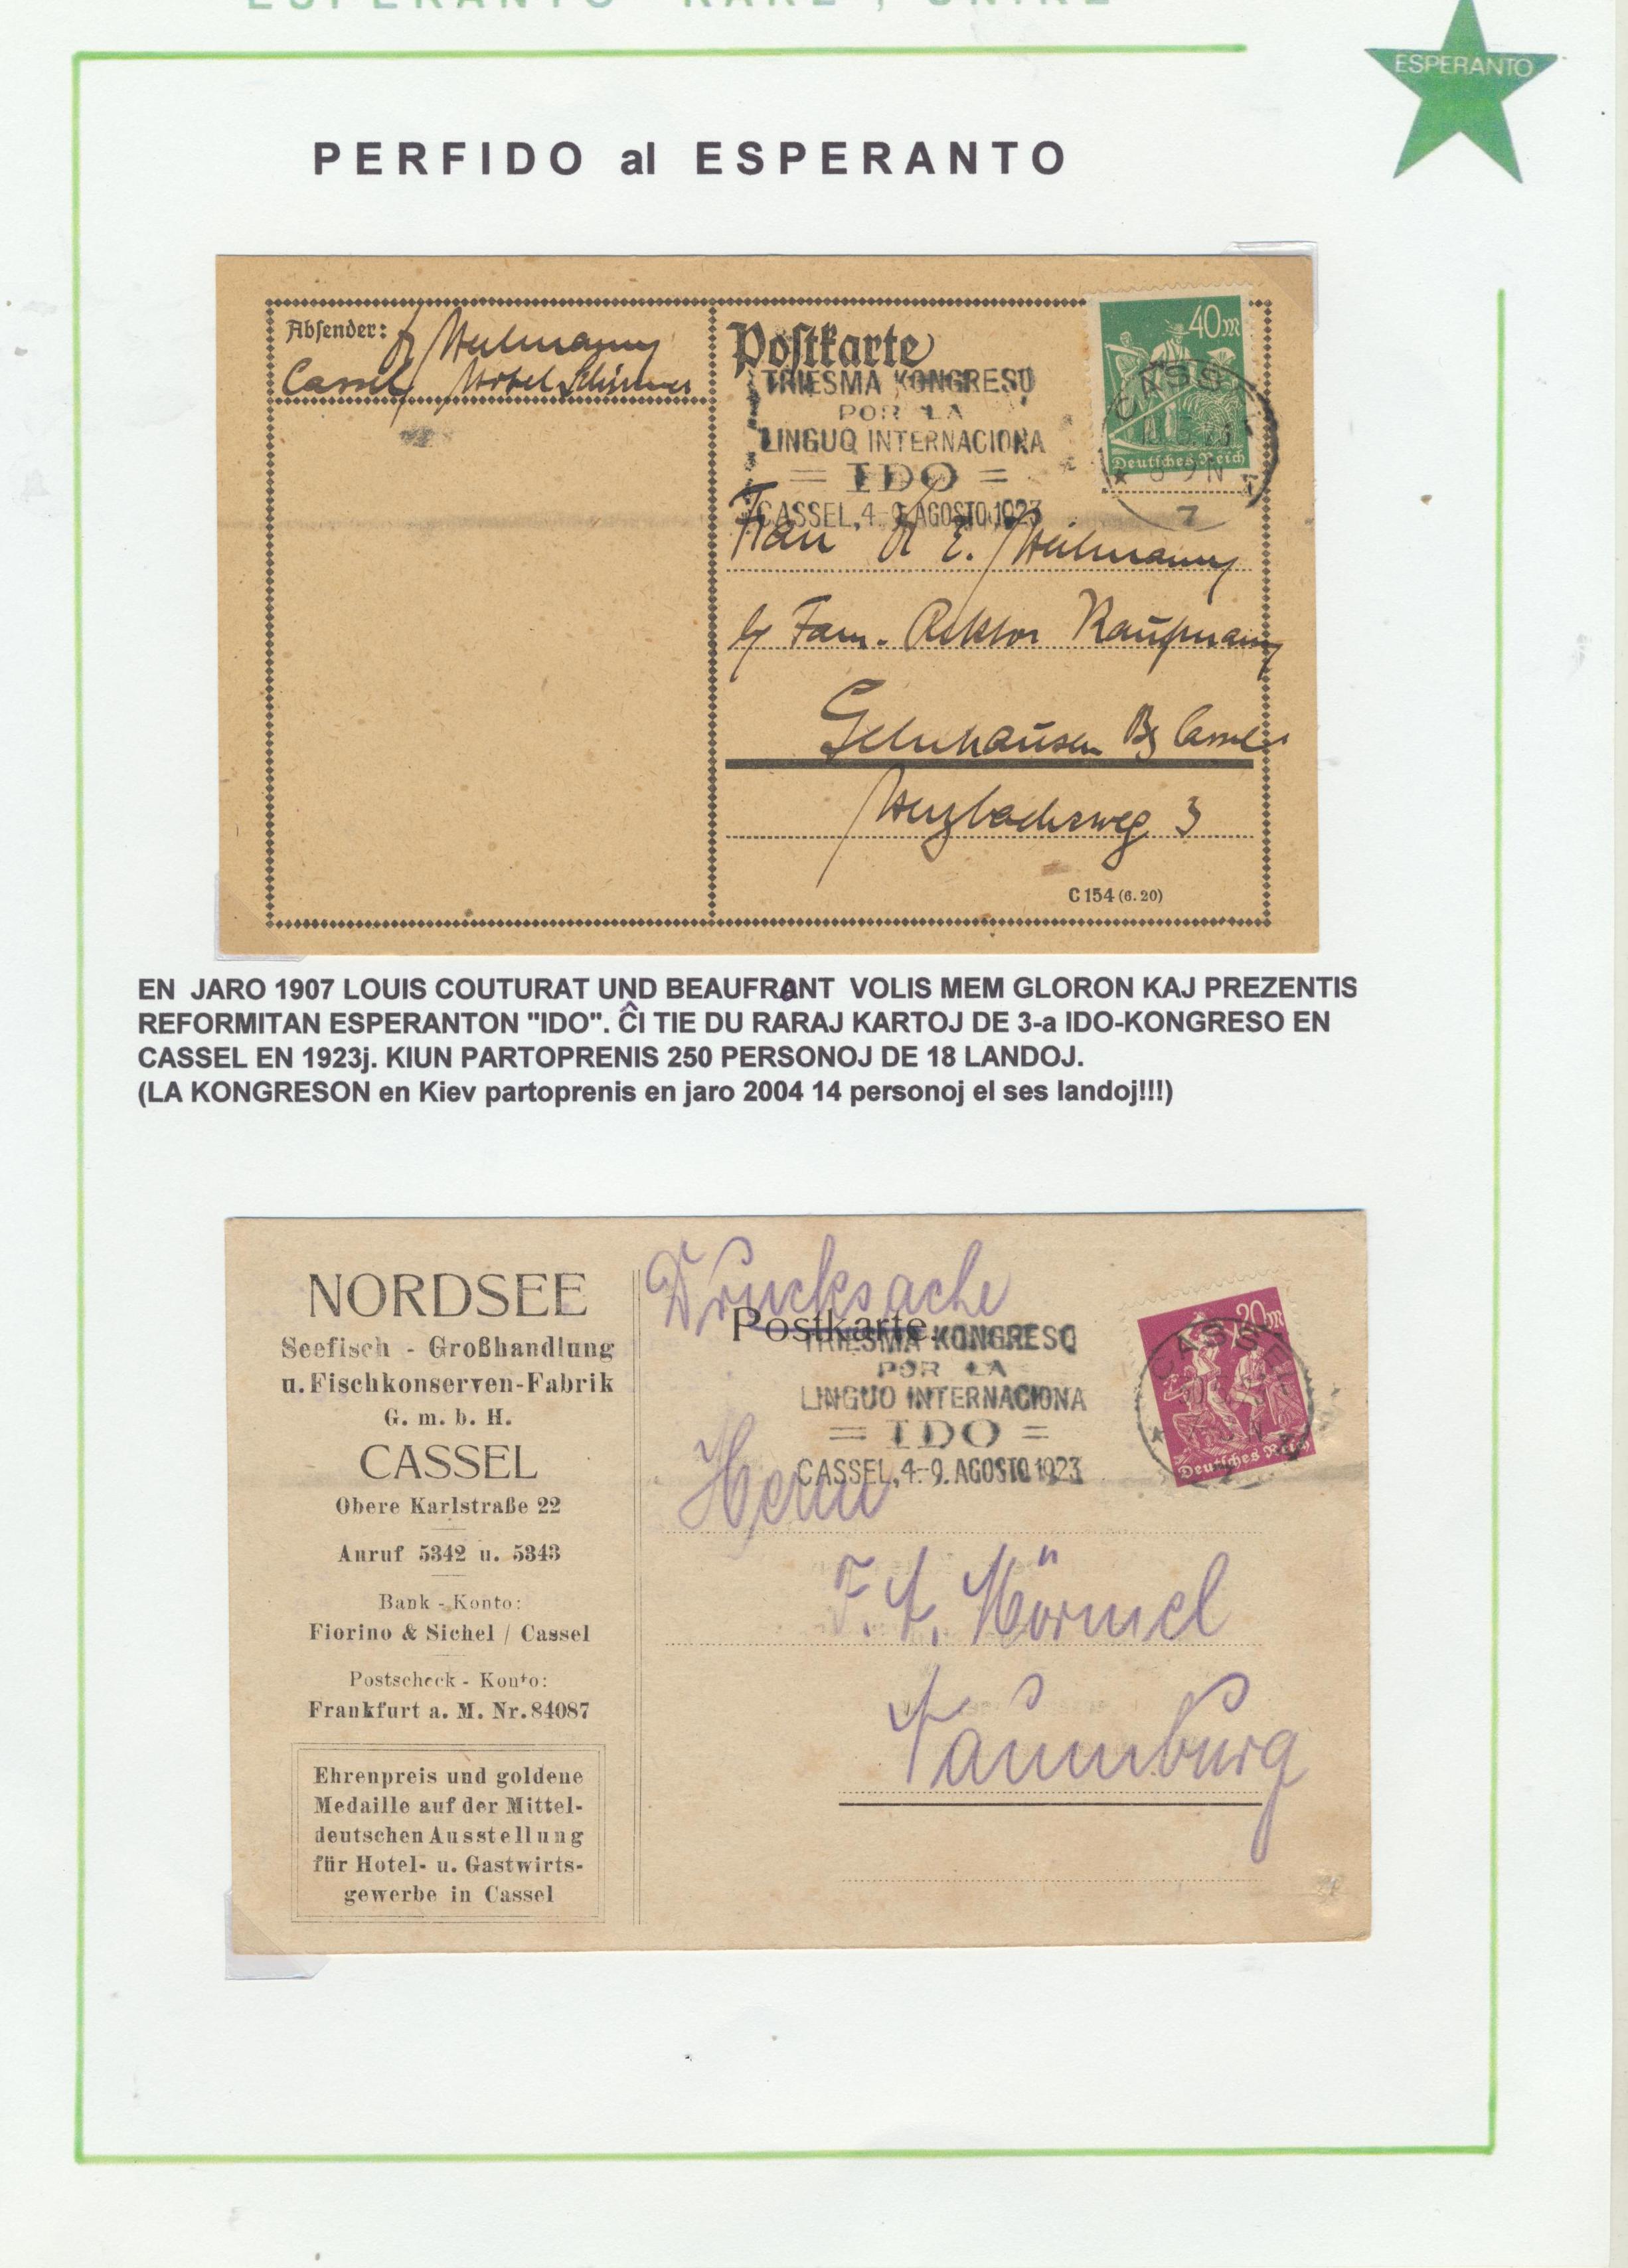 ESPERANTO RARE, UNIKE
ESPERANTO
PERFIDO al ESPERANTO
Absender:
Cassel
Postkarte
40m
TRIESMA KONGRESO
POR LA
LINGUO INTERNACIONA
= IDO =
CASSEL, 4.-9. AGOSTO 1923
CASSEL
Deutsches Reich
8-9 N
7
Frau Dr E.
Fam. Rektor Kaufmann
Gelnhausen Bz Cassel
3
C 154 (6. 20)
EN JARO 1907 LOUIS COUTURAT UND BEAUFRONT VOLIS MEM GLORON KAJ PREZENTIS
REFORMITAN ESPERANTON "IDO". ĈI TIE DU RARAJ KARTOJ DE 3-a IDO-KONGRESO EN
CASSEL EN 1923j. KIUN PARTOPRENIS 250 PERSONOJ DE 18 LANDOJ.
(LA KONGRESON en Kiev partoprenis en jaro 2004 14 personoj el ses landoj!!!)
NORDSEE
Seefisch - Großhandlung
u. Fischkonserven-Fabrik
G. m. b. H.
CASSEL
Obere Karlstraße 22
Anruf 5342 u. 5343
Bank - Konto:
Fiorino & Sichel / Cassel
Postscheck - Konto:
Frankfurt a. M. Nr. 84087
Ehrenpreis und goldene
Medaille auf der Mittel-
deutschen Ausstellung
für Hotel- u. Gastwirts-
gewerbe in Cassel
Drucksache
Postkarte.
TRIESMA KONGRESO
POR LA
LINGUO INTERNACIONA
= IDO =
CASSEL, 4.-9. AGOSTO 1923
20m
CASSEL
Deutsches Reich
Herrn
F. A. Hörmel
Naumburg